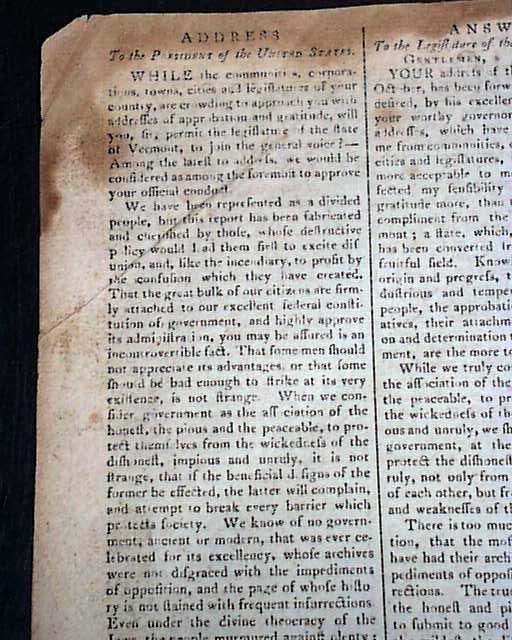 ADDRESS
To the PRESIDENT of the UNITED STATES.
WHILE the communities, corpora-
tions, towns, cities and legislatures of your
country, are crowding to approach you with
addresses of approbation and gratitude, will
you, sir, permit the legislature of the state
of Vermont, to join the general voice?—
Among the latest to address, we would be
considered as among the foremost to approve
your official conduct.
We have been represented as a divided
people, but this report has been fabricated
and cherished by those, whose destructive
policy would lead them first to excite dis
union, and, like the incendiary, to profit by
the confusion which they have created.
That the great bulk of our citizens are firm-
ly attached to our excellent federal consti-
tution of government, and highly approve
its administration, you may be assured is an
incontrovertible fact. That some men should
not appreciate its advantages, or that some
should be bad enough to strike at its very
existence, is not strange. When we con-
sider government as the association of the
honest, the pious and the peaceable, to pro-
tect themselves from the wickedness of the
dishonest, impious and unruly, it is not
strange, that if the beneficial designs of the
former be effected, the latter will complain,
and attempt to break every barrier which
protects society. We know of no govern-
ment, ancient or modern, that was ever ce-
lebrated for its excellency, whose archives
were not disgraced with the impediments
of opposition, and the page of whose histo
ry is not stained with frequent insurrections
Even under the divine theocracy of the
Jews, the people murmured against plenty
ANSW
To the Legislature of the
GENTLEMEN,
YOUR address of t
October, has been forw
desired, by his excelle
your worthy governor
addresses, which have
me from communities,
cities and legislatures,
more acceptable to m
fected my sensibility
gratitude more, than
compliment from the
mont; a state, which,
has been converted fr
fruitful field. Know
origin and progress, t
dustrious and tempe
people, the approbati
atives, their attachm
on and determination t
ment, are the more to
While we truly co
the association of the
the peaceable, to pr
the wickedness of th
ous and unruly, we sh
government, at the
protect the dishonest
ruly, not only from
of each other, but fr
and weaknesses of th
There is too muc
tion, that the mos
have had their arch
pediments of opposi
rections. The tru
the honest and pi
to submit to good